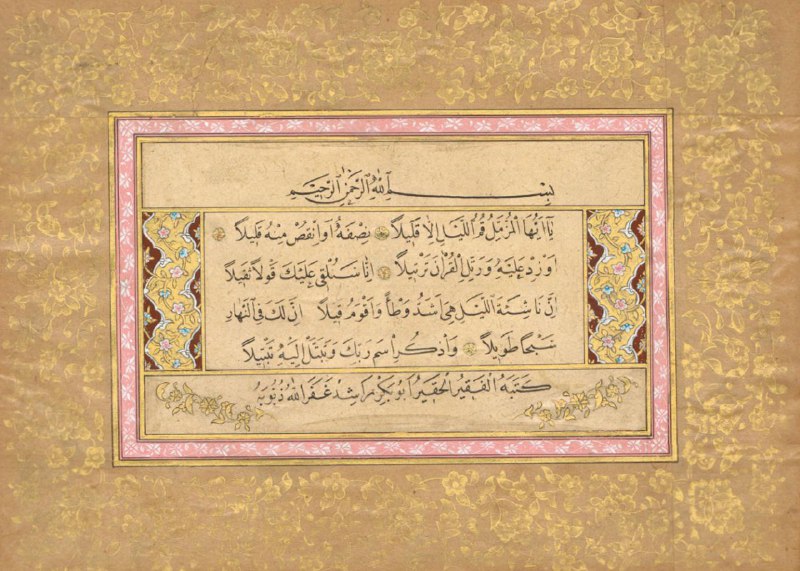 بِسْمِ اللهِ الرَّحْمٰنِ الرَّحِيمِ
يَآ اَيُّهَا الْمُزَّمِّلُ قُمِ اللَّيْلَ اِلَّا قَلِيلاً نِصْفَهُ اَوِ انْقُصْ مِنْهُ قَلِيلاً
اَوْ زِدْ عَلَيْهِ وَرَتِّلِ الْقُرْاٰنَ تَرْتِيلاً اِنَّا سَنُلْقِي عَلَيْكَ قَوْلاً ثَقِيلاً
اِنَّ نَاشِئَةَ اللَّيْلِ هِيَ اَشَدُّ وَطْأً وَاَقْوَمُ قِيلاً اِنَّ لَكَ فِي النَّهَارِ
سَبْحًا طَوِيلاً وَاذْكُرِ اسْمَ رَبِّكَ وَتَبَتَّلْ اِلَيْهِ تَبْتِيلاً
كَتَبَهُ الْفَقِيرُ الْحَقِيرُ اَبُو بَكْرٍ رَاشِدْ غَفَرَ اللهُ ذُنُوبَهُ